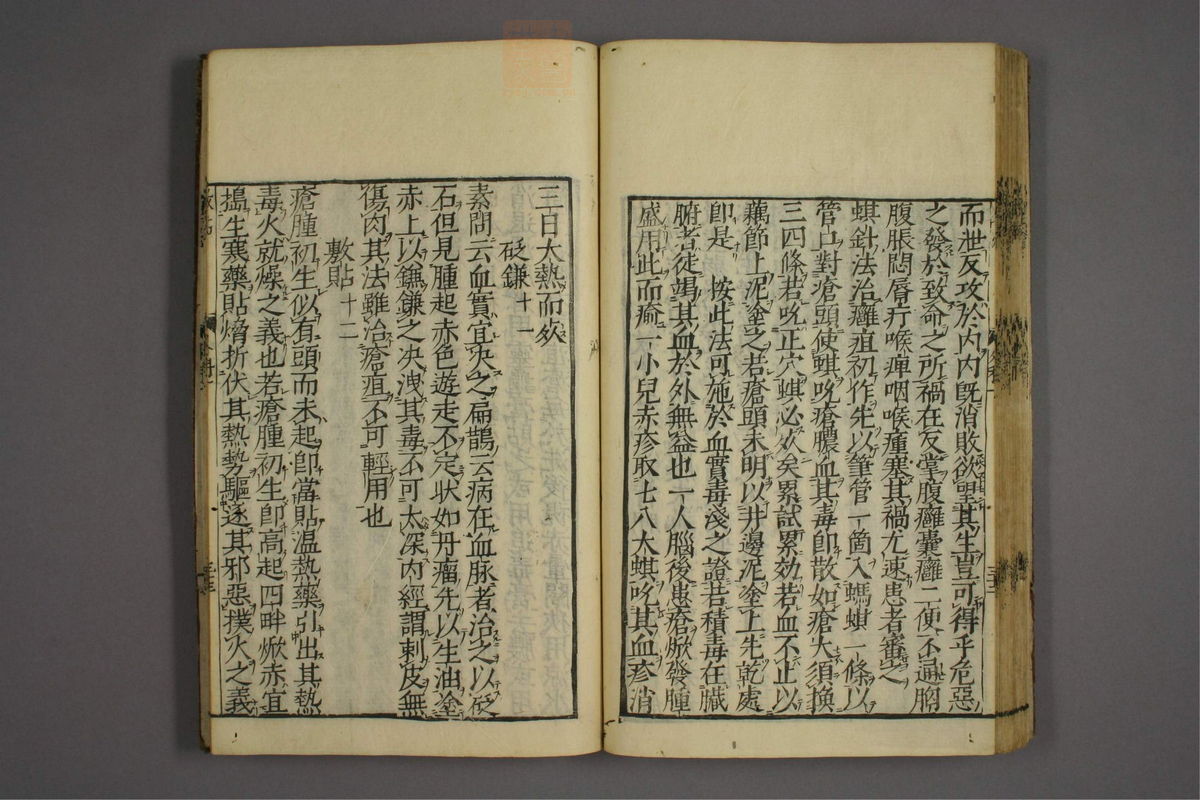 而泄反攻於內內既消敗欲望其生豈可得乎危惡
之發於致命之所禍在反掌腹癰囊癰二便不通胸
腹脹悶唇疔喉痺咽喉腫塞其禍尤速患者審之
蜞針法治癰疽初作先以筆管一箇入螞蜞一條以
管口對瘡頭使蜞吮瘡膿血其毒即散如瘡大須換
三四條若吮正穴蜞必死矣累試累効若血不止以
藕節上泥塗之若瘡頭未明以井邊泥塗上先乾處
即是 按此法可施於血實毒淺之證若積毒在臟
腑者徒竭其血於外無益也一人腦後患瘡焮發腫
盛用此而瘉一小兒赤疹取七八大蜞吮其血疹消
三日大熱而死
砭鎌十一
素問云血實宜決之扁鵲云病在血脉者治之以砭
石但見腫起赤色遊走不定狀如丹瘤先以生油塗
赤上以鎌鎌之决洩其毒不可太深內經謂刺皮無
傷肉其法雖治瘡疽不可輕用也
敷貼十二
瘡腫初生似有頭而未起即當貼温熱藥引出其熱
毒火就燥之義也若瘡腫初生即高起四畔焮赤宜
搗生寒藥貼熁折伏其熱勢驅逐其邪惡撲火之義